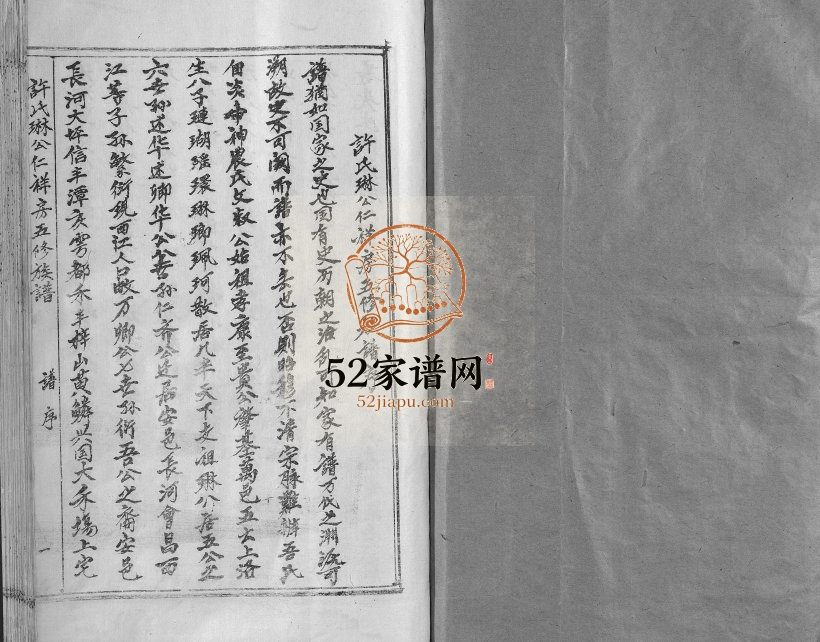 許氏琳公仁祥房五修
譜猶如国家之史也国有史历朝之治 知家有譜万代之渊源可
溯故史不可阙而譜亦不 也否則昭穆不清宗脉難辨吾氏
自炎帝神農氏文叔公始祖孝廉至貴公肇基萬邑五公上洛
生八子璉瑚瑶環琳卿珮珂散居凡半天下支祖琳公居五公之
六世孙述华述卿华公 世孙仁斋公迁居安邑長河會昌西
江等子孙繁衍现西江人口 万卿公七世孙衍吾公之裔安邑
長河大坪信丰潭 雩都禾丰梓山黄鳞兴国大禾場上宅
許氏琳公仁祥房五修族譜
譜序
一
52家谱网
52jiapu.com